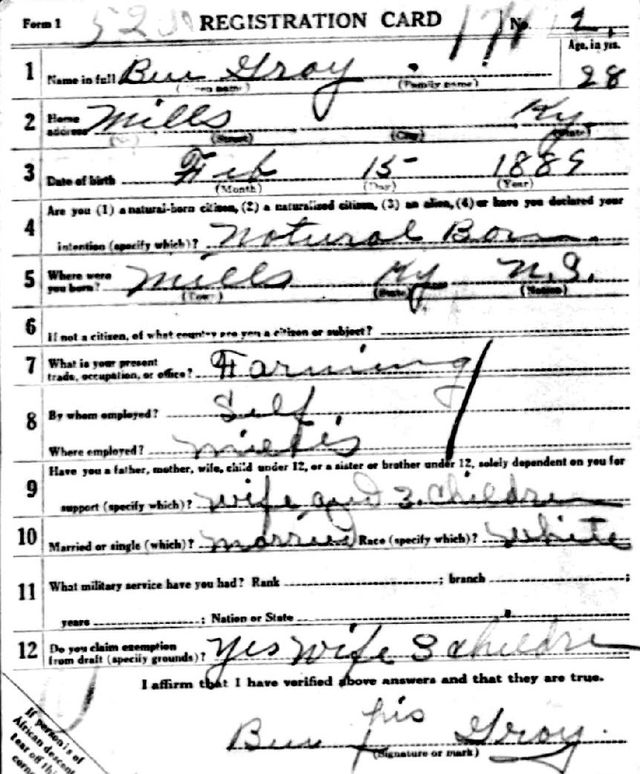 Form 1 REGISTRATION CARD No. 2
Age, in yrs.
1 Name in full Ben Gray 28
(Family name)
2 Home address Mills Ky.
(Street) (City) (State)
3 Date of birth Feb 15 1889
(Month) (Day) (Year)
4 Are you (1) a natural-born citizen, (2) a naturalized citizen, (3) an alien, (4) or have you declared your
intention (specify which)? Notural Born
5 Where were you born? Mills Ky
(Town) (State) (Nation)
6 If not a citizen, of what country are you a citizen or subject?
7 What is your present
trade, occupation, or office? Farming
8 By whom employed? Self
Where employed?
9 Have you a father, mother, wife, child under 12, or a sister or brother under 12, solely dependent on you for
support (specify which)? wife and 3. children
10 Married or single (which)? married Race (specify which)? White
11 What military service have you had? Rank ; branch ;
years ; Nation or State
12 Do you claim exemption
from draft (specify grounds)? Yes Wife 3 childre
I affirm that I have verified above answers and that they are true.
Ben his Gray
(Signature or mark)
If person is of
African descent
tear off this
corner